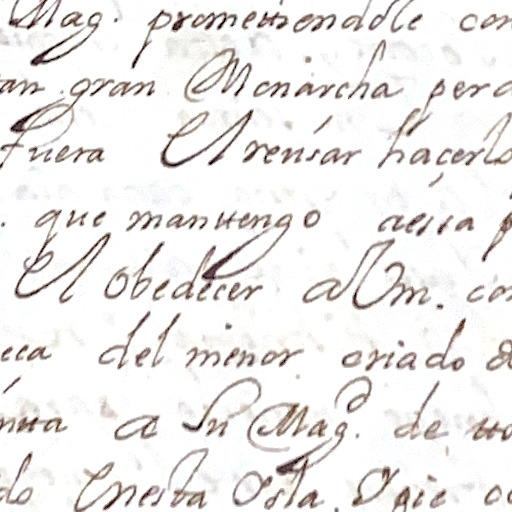 Mag. promettiendole con
tan gran Monarcha pero
fuera El reusar haçerlo
. que manttengo aessa p
El obedecer a Vm. con
eca del menor criado de
intta a Su Magd. de tto
do Enesta Ysla. Y gie